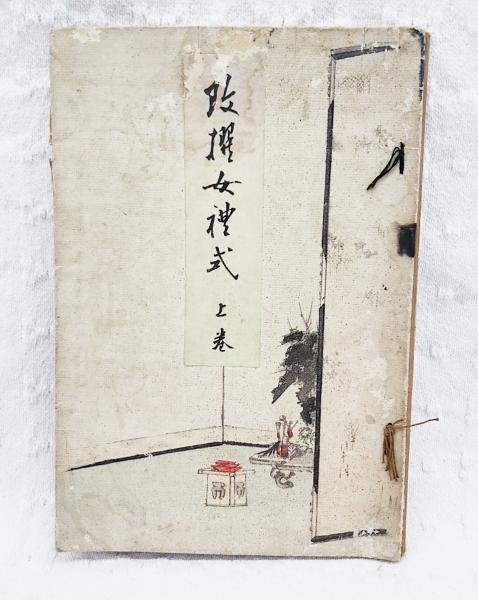 改撰女禮式 上巻